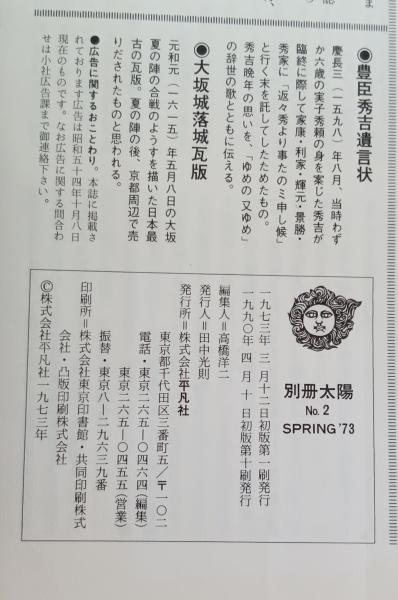 ●豊臣秀吉遺言状
慶長三(一五九八)年八月、当時わず
か六歳の実子秀頼の身を案じた秀吉が
臨終に際して家康・利家・輝元・景勝・
秀家に「返々秀より事たのミ申し候」
と行く末を託してしたためたもの。
秀吉晩年の思いを、「ゆめの又ゆめ」
の辞世の歌とともに伝える。
●大坂城落城瓦版
元和元(一六一五)年五月八日の大坂
夏の陣の合戦のようすを描いた日本最
古の瓦版。夏の陣の後、京都周辺で売
りだされたものと思われる。
●広告に関するおことわり。本誌に掲載さ
れております広告は昭和五十四年十月八日
現在のものです。なお広告に関する問合わ
せは小社広告課まで御連絡下さい。
別冊太陽
No. 2
SPRING '73
一九七三年 三月十二日初版第一刷発行
一九九〇年 四月 十日初版第十刷発行
編集人=高橋洋二
発行人=田中光則
発行所=株式会社平凡社
東京都千代田区三番町五/〒一〇二
電話・東京二六五―〇四六四(編集)
東京二六五―〇四五五(営業)
振替・東京八―二九六三九番
印刷所=株式会社東京印書館・共同印刷株式
会社・凸版印刷株式会社
©株式会社平凡社一九七三年